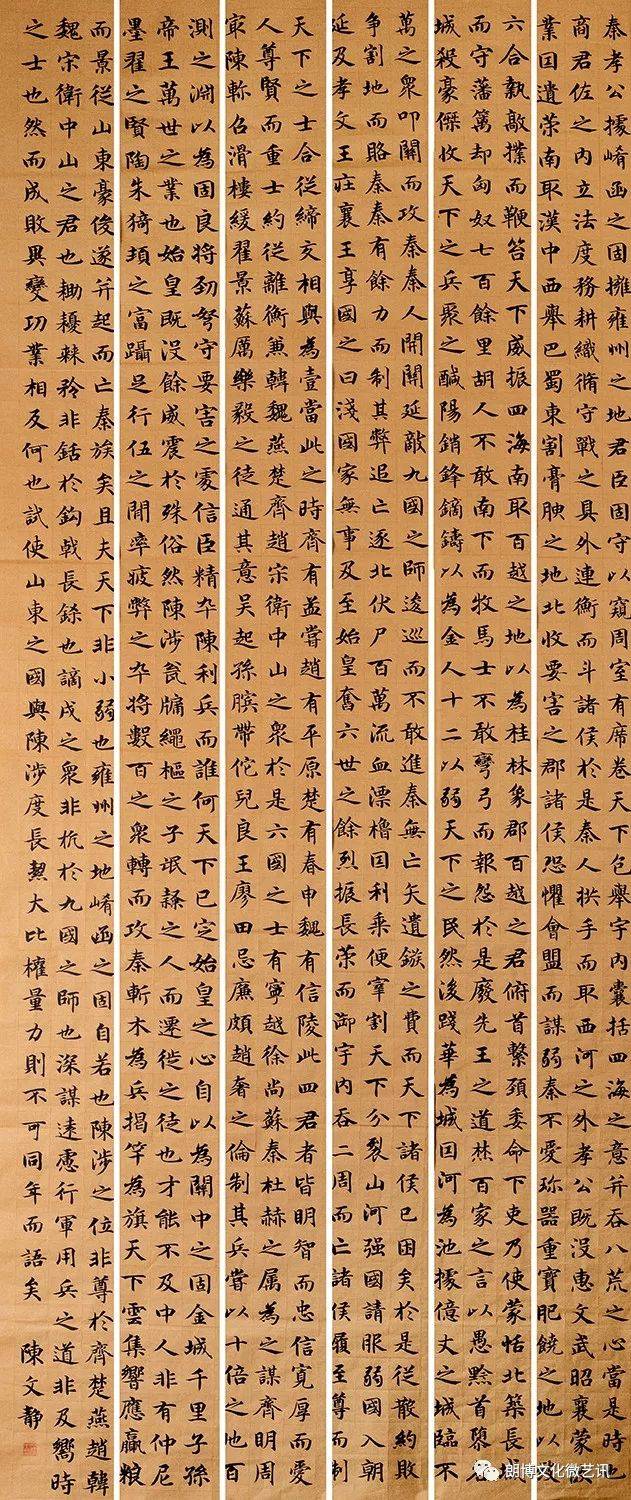 秦孝公據崤函之固擁雍州之地君臣固守以窺周室有席卷天下包舉宇內囊括四海之意并吞八荒之心當是時也
商君佐之內立法度務耕織脩守戰之具外連衡而斗諸侯於是秦人拱手而取西河之外孝公既沒惠文武昭襄蒙故
業因遺策南取漢中西舉巴蜀東割膏腴之地北收要害之郡諸侯恐懼會盟而謀弱秦不愛珍器重寶肥饒之地以致
六合執敲撲而鞭笞天下威振四海南取百越之地以為桂林象郡百越之君俯首繫頸委命下吏乃使蒙恬北築長城
而守藩籬却匈奴七百餘里胡人不敢南下而牧馬士不敢彎弓而報怨於是廢先王之道焚百家之言以愚黔首隳名
城殺豪傑收天下之兵聚之鹹陽銷鋒鏑鑄以為金人十二以弱天下之民然後踐華為城因河為池據億丈之城臨不
萬之眾叩關而攻秦秦人開關延敵九國之師逡巡而不敢進秦無亡矢遺鏃之費而天下諸侯已困矣於是從散約敗
爭割地而賂秦秦有餘力而制其弊追亡逐北伏尸百萬流血漂櫓因利乘便宰割天下分裂山河强國請服弱國入朝
延及孝文王莊襄王享國之日淺國家無事及至始皇奮六世之餘烈振長策而御宇內吞二周而亡諸侯履至尊而制
天下之士合從締交相與為壹當此之時齊有孟嘗趙有平原楚有春申魏有信陵此四君者皆明智而忠信寬厚而愛
人尊賢而重士約從離衡兼韓魏燕楚齊趙宋衛中山之眾於是六國之士有甯越徐尚蘇秦杜赫之属為之謀齊明周
冣陳軫召滑樓緩翟景蘇厲樂毅之徒通其意吴起孫臏帶佗兒良王廖田忌廉頗趙奢之倫制其兵嘗以十倍之地百
測之淵以為固良將劲弩守要害之處信臣精卒陳利兵而誰何天下已定始皇之心自以為關中之固金城千里子孫
帝王萬世之業也始皇既没餘威震於殊俗然陳涉瓮牖繩樞之子氓隸之人而遷徙之徒也才能不及中人非有仲尼
墨翟之賢陶朱猗頓之富躡足行伍之間率疲弊之卒将數百之衆轉而攻秦斬木為兵揭竿為旗天下雲集響應贏粮
而景從山東豪俊遂并起而亡秦族矣且夫天下非小弱也雍州之地崤函之固自若也陳涉之位非尊於齊楚燕趙韓
魏宋衛中山之君也耡耰棘矜非銛於鈎戟長鎩也謫戍之衆非抗於九國之師也深謀遠慮行軍用兵之道非及嚮時
之士也然而成敗異變功業相反何也試使山東之國與陳涉度長絜大比權量力則不可同年而語矣 陳文靜
朗博文化微艺讯